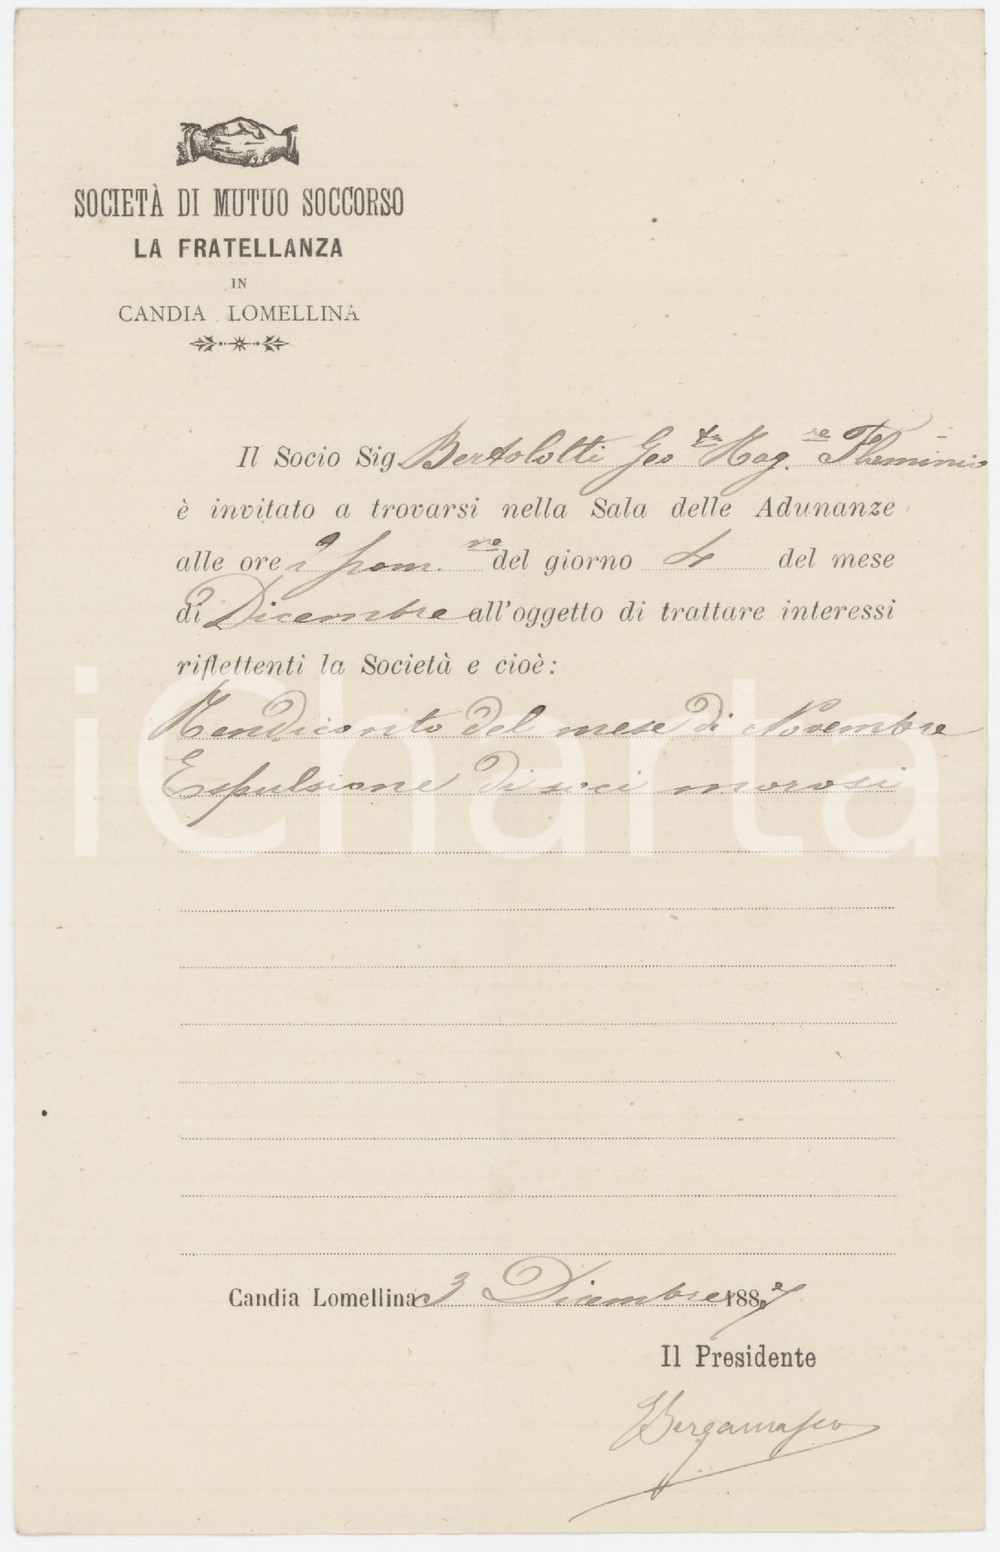 SOCIETÀ DI MUTUO SOCCORSO
LA FRATELLANZA
IN
CANDIA LOMELLINA
Il Socio Sig. Bertolotti Geo tra Mag. re Flaminio
è invitato a trovarsi nella Sala delle Adunanze
alle ore 2 pom. ne del giorno 4 del mese
di Dicembre all'oggetto di trattare interessi
riflettenti la Società e cioè:
Rendiconto del mese di Novembre
Espulsione di soci morosi
iCharta
Candia Lomellina 3 Dicembre 1887
Il Presidente
Bergamasco